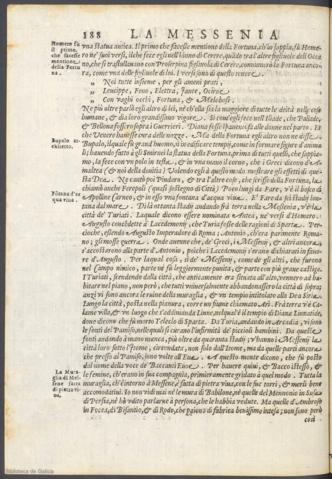 188 LA MESSENIA
Homero fu
il primo,
che facesse
mentione
della Fortu
na.
una statua antica. Il primo che facesse mentione della Fortuna, ch'io sappia, fù Home-
ro ne' suoi versi, ilche fece egli nell'Hinno di Cerere, quando tra l'altre figliuole dell'Oce-
ano, che si trastullauano con Proserpina figliuola di Cerere, connumerò la Fortuna anco-
ra, come una delle figliuole di lui. I versi sono di questo tenore
Noi tutte insieme, per gli ameni prati,
Leucippe, Feno, Elettra, Iante, Ociroe,
Con vaghi occhi, Fortuna, & Melobosi.
Ne più oltre parlò egli altro di lei, nè ch'ella sia la maggiore di tutte le deità nelle cose
humane, & dia loro grandissimo vigore. Sì come egli fece nell'Iliade, che Pallade,
& Bellona fossero sopra Guerrieri. Diana fosse spauentosa alle donne nel parto. Et
che Venere hauesse cura delle nozze. Ma della Fortuna egli altro non ne disse.
Bupalo ar-
chitetto.
Bupalo, ilquale fù grand'huomo, in edificare tempij, come in formare figure d'anima
li; hauendo fatto à gli Smirnei la statua della Fortuna, prima di tutti quelli, che sappia-
mo, la fece con un polo in testa, & in una mano il corno, che i Greci dicono d'A-
maltea (& noi della douitia) Volendo egli à questo modo mostrare gli effetti di que-
sta Dea. Ne cantò poi Pindaro, & tra l'altre cose, che scrisse della Fortuna, la
chiamò anche Ferepoli (quasi sostegno di Città) Poco lungi da Fare, v'è il bosco di
Fōtana d'ac
qua viua.
Apolline Carneo, & in esso vna fontana d'acqua viua. E' Fare da sei stadij lon-
tana dal mare. Di là ottanta stadij andando frà terra nella Messenia, v'è la
città de' Turiati. Laquale dicono essere nominata Antea, ne' versi d'Homero.
Augusto concedette à' Lacedemonij, che Turia fosse delle ragioni di Sparta. Per-
cioche, essendo Augusto Imperadore di Roma; Antonio, ch'era parimente Roma-
no; gli mosse guerra. Onde auenne che, de' Greci, i Messenij, & altri ancora,
s'accostarono alla parte d'Antonio, poiche i Lacedemonij s'erano dichiarati in fauo-
re d'Augusto. Per laqual cosa, sì de' Messenij, come de gli altri, che furono
nel campo nimico, parte nè fù leggiermente punita, & parte con più graue castigo.
I Turiati, scendendo dalla città, che anticamente era situata all'alto, vennero ad ha-
bitare nel piano, non però, che tutti universalmente abbandonassero la città di sopra;
anzi vi sono ancora le ruine della muraglia, & un tempio intitolato alla Dea Siria.
Lungo la città, posta nella pianura, corre un fiume chiamato Ari. Frà terra v'è Ca-
lame villa, & vn luogo che s'addimanda Linne, nelqual è il tempio di Diana Linnatide,
doue dicono che fù morto Teleclo di Sparta. Da Turia, andando in Arcadia, visono
le fonti del Panisso, nellequali si curano l'infermità de' piccioli bambini. Da queste
fonti andando à mano manca, più oltre da quaranta stadij, v'hanno i Messenij la
città loro sotto l'Itome, circondata, non solo dall'Itome, ma da quella parte ancora,
che piega al Panisso, sono volte all'Eua. A questo monte dicono, che fù posto
dal nome della voce de' Baccanti Euoe. Per hauere quiui, & Bacco istesso, &
le femine, ch'erano in sua compagnia, primieramente gridato à quel modo. Tutta la
La Mura-
glia di Mes-
sene fatta
di pietra vi-
ua.
muraglia, ch'è intorno à Messene, è fatta di pietra viua, con le sue torri, & merli bene
accomodati. Io non vidi mai nè le mura di Babilone, nè quelle del Mennonio in Susa
di Persia, nè hò udito parlarne à persona, che le habbia vedute. Ma quelle d'Ambroso
in Focea, di Bisantio, & di Rodo, che paiono di fabrica benissimo intesa; non sono però
così
Biblioteca de Galicia